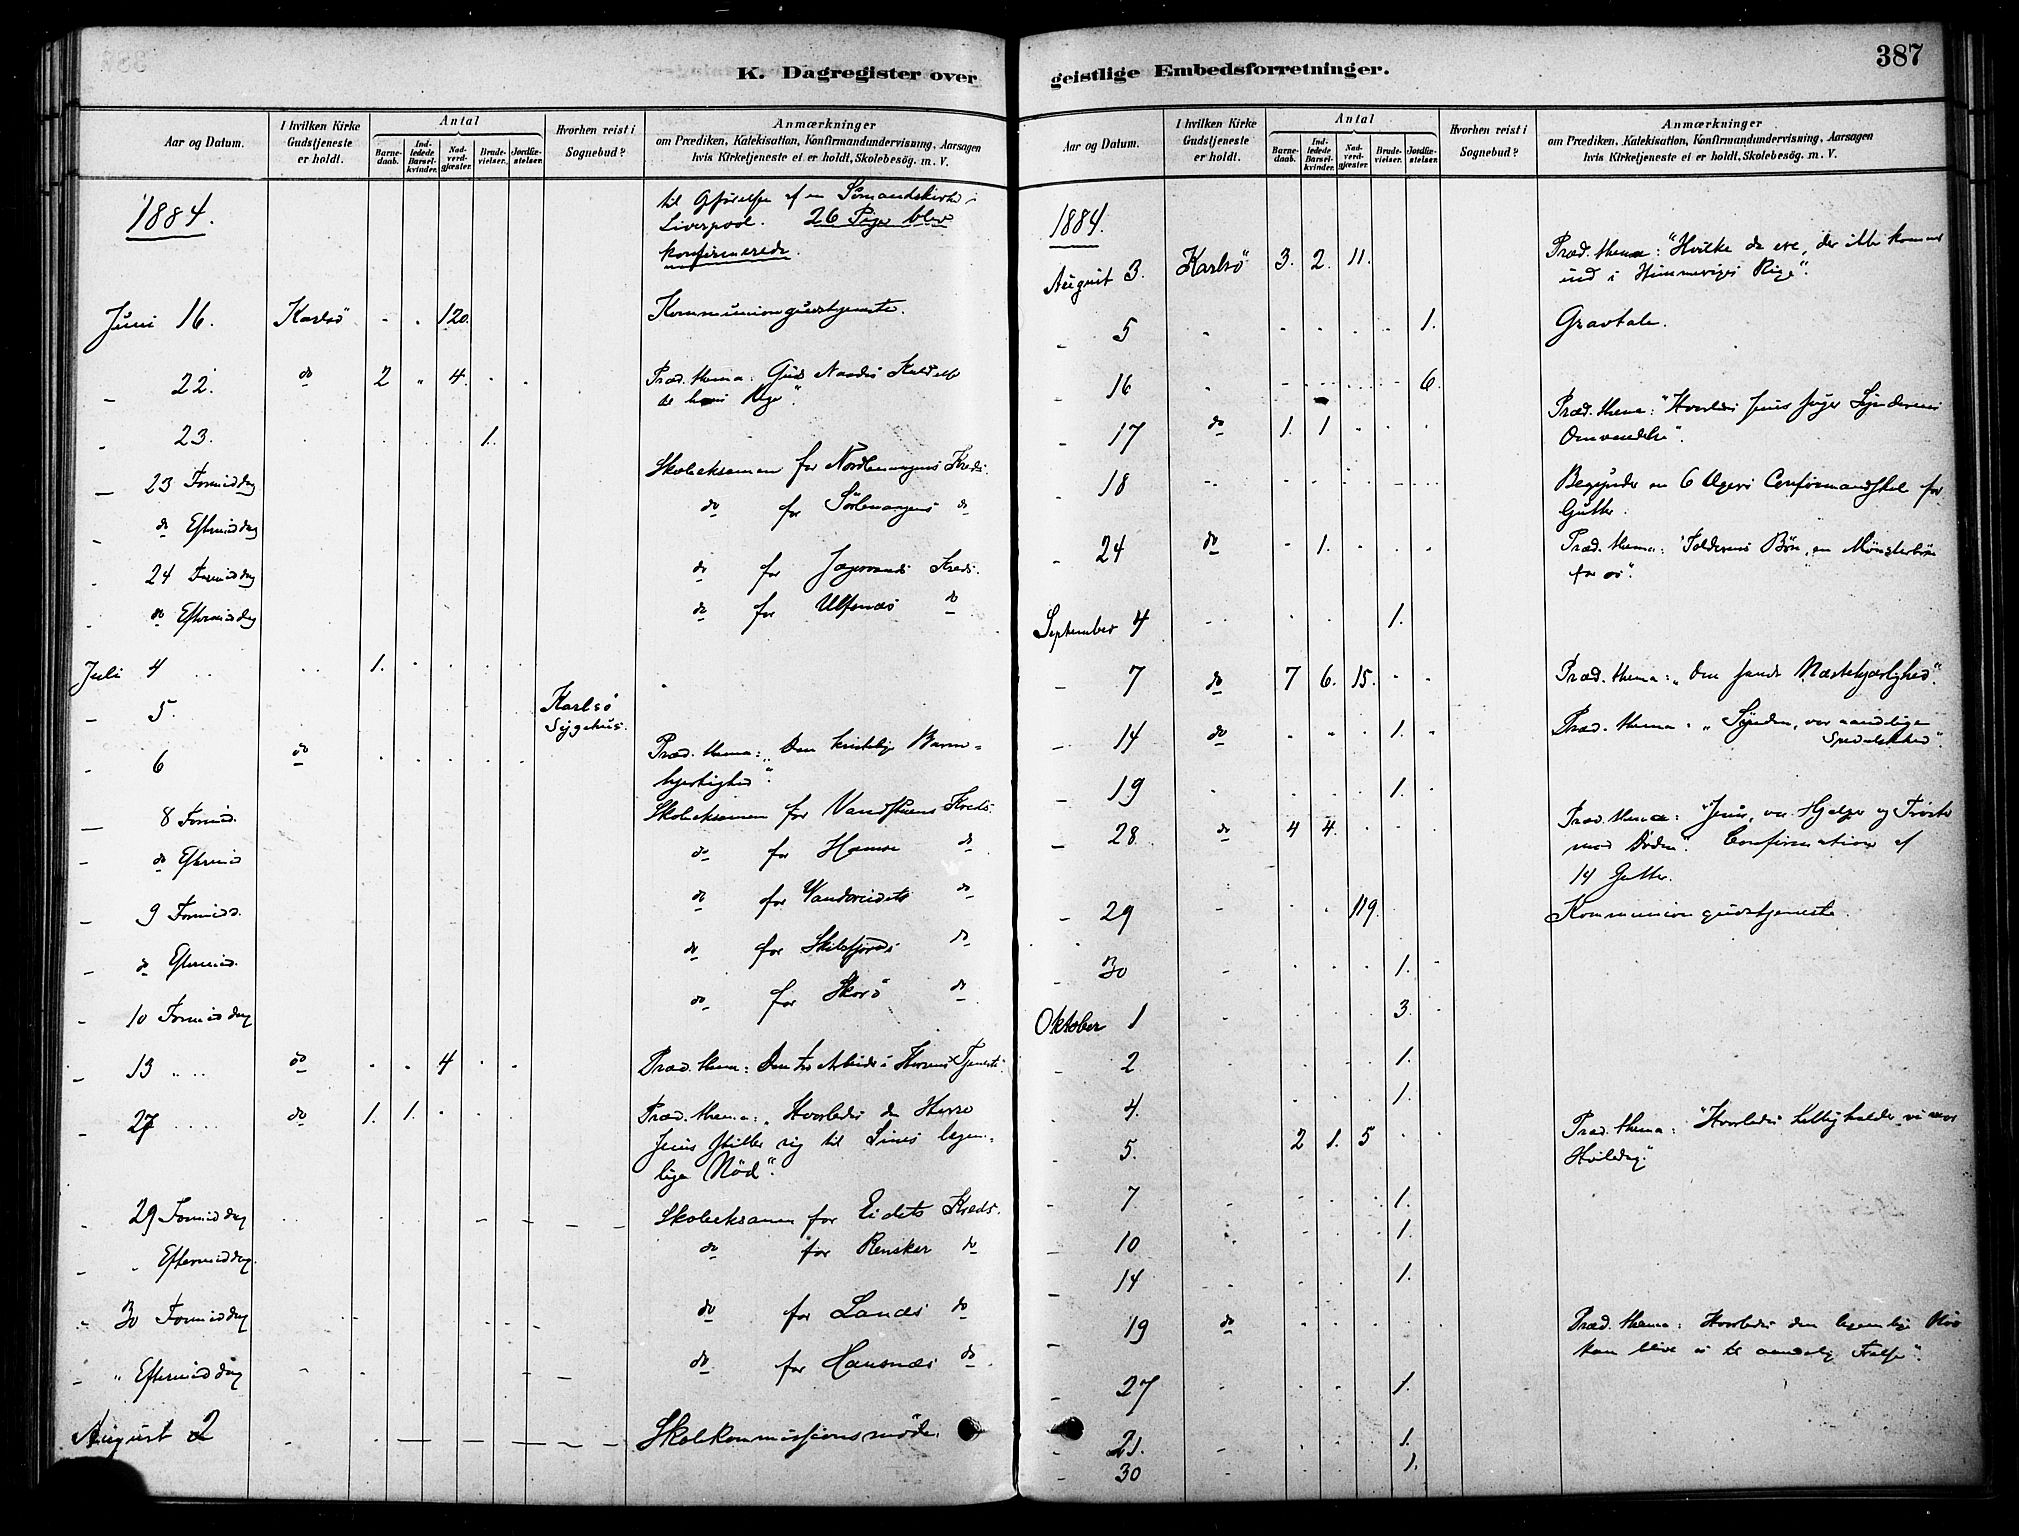 K. Dagregister over
Aar og Datum.
I hvilken Kirke Gudstjeneste er holdt.
Antal
Barnedaab.
Indledede Barselkvinder.
Nadverdgjæster.
Brudevielser.
Jordfæstelser.
Hvorhen reist i Sognebud?
Anmærkninger
om Prædiken, Katekisation, Konfirmandundervisning, Aarsagen
hvis Kirketjeneste ei er holdt, Skolebesög. m. V.
1884.
til Opførelse af en Sømandskirke i
Liverpool. 26 Piger blev
konfirmerede.
Juni 16. Karlsö - „ 120. Kommuniongudstjeneste.
„ 22. do 2 „ 4. . . Præd. thema: Guds Naades Kaldelse
til hans Rige".
„ 23. 1.
— 23 Formiddag Skoleeksamen for Nordlenangens Kreds.
„ do Eftermiddag do for Sörlenangens do
„ 24 Formiddag do for Jægervands Kreds.
„ do Eftermiddag do for Ulfsnæs do
Juli 4 1.
„ 5. Karlsö
Sygehus.
„ 6 do Præd. thema: „Den kristelige Barm-
hjertighed".
— 8 Formid. Skoleeksamen for Vandstuens Kreds.
„ do Eftermid do for Hamre do
„ 9 Formidd. do for Vandereidets do
„ do Eftermid. do for Skulsfjords do
„ 10 Formiddag do for Skorö do
„ 13 „ .. do . . 4 . . Præd. thema: Den tro Arbeider i Herrens Tjeneste.
„ 27 do 1. 1. Præd. thema: „Hvorledes den Herre
Jesus stiller sig til Sines legem-
lige Nöd".
„ 29 Formiddag Skoleeksamen for Eidets Kreds.
„ „ Eftermiddag. do for Rensker do
„ 30 Formiddag do for Lanæs do
„ „ Eftermiddag do for Hansnæs do
August 2 Skolekommissionsmöde.
geistlige Embedsforretninger.
387
Aar og Datum.
I hvilken Kirke Gudstjeneste er holdt.
Antal
Barnedaab.
Indledede Barselkvinder.
Nadverdgjæster.
Brudevielser.
Jordfæstelser.
Hvorhen reist i Sognebud?
Anmærkninger
om Prædiken, Katekisation, Konfirmandundervisning, Aarsagen
hvis Kirketjeneste ei er holdt, Skolebesög. m. V.
1884.
August 3. Karlsö 3. 2. 11. Præd. thema: "Hvilke de ere, der ikke kommer
ind i Himmeriges Rige".
„ 5 1. Gravtale.
„ 16 6.
„ 17 do 1. 1 Præd. thema: "Hvorledes Jesus søger Synderens
Omvendelse".
„ 18 Begynder en 6 Ugers Confirmandskole for
Gutter.
„ 24 do - 1. Præd. thema: "Tolderens Bön, en Mönsterbön
for os".
September 4 1.
„ 7 do 7 6. 15. Præd. thema: „Den sande Næstekjærlighed".
„ 14 do 1. Præd. thema: „Synden, vor aandelige
Spedalskhed".
„ 19 1.
— 28. do 4 4. Præd. thema: "Jesus, vor Hjælper og Tröster
mod Döden". Confirmation af
14 Gutter.
„ 29 119. Kommuniongudstjeneste.
„ 30 1.
Oktober 1 3.
„ 2 1.
„ 4. 1.
„ 5. 2 1. 5 Præd. thema: "Hvorledes helligholder vi vor
Hviledag".
„ 7 1.
— 10 1.
„ 14 1.
„ 19 do Præd. thema: Hvorledes den legemlige Nöd
kan blive os til aandelig Frelse".
„ 27 1.
„ 21. 1.
„ 30 1.